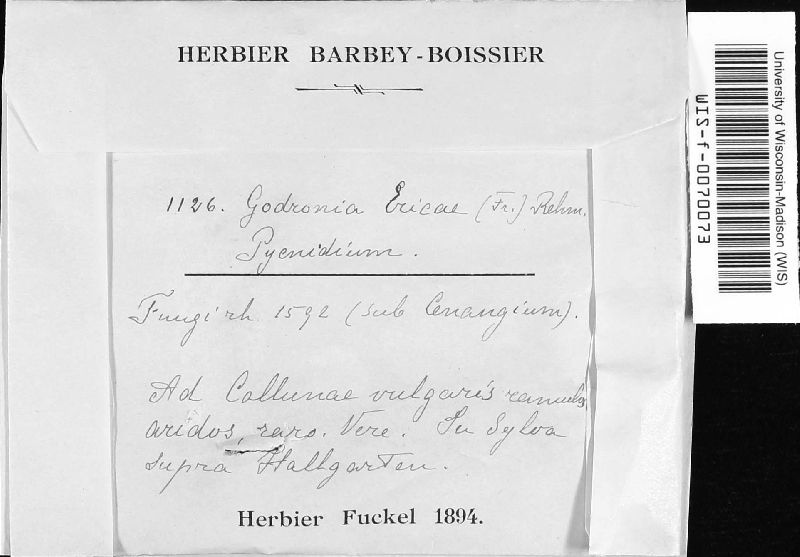 HERBIER BARBEY-BOISSIER
1126. Godronia Ericae (Fr.) Rehm.
Pycnidium.
Fungi rh. 1592 (sub Cenangium).
Ad Callunae vulgaris ramulos
aridos, raro. Vere. In Sylva
supra Hallgarten.
Herbier Fuckel 1894.
University of Wisconsin-Madison (WIS)
WIS-f-0070073